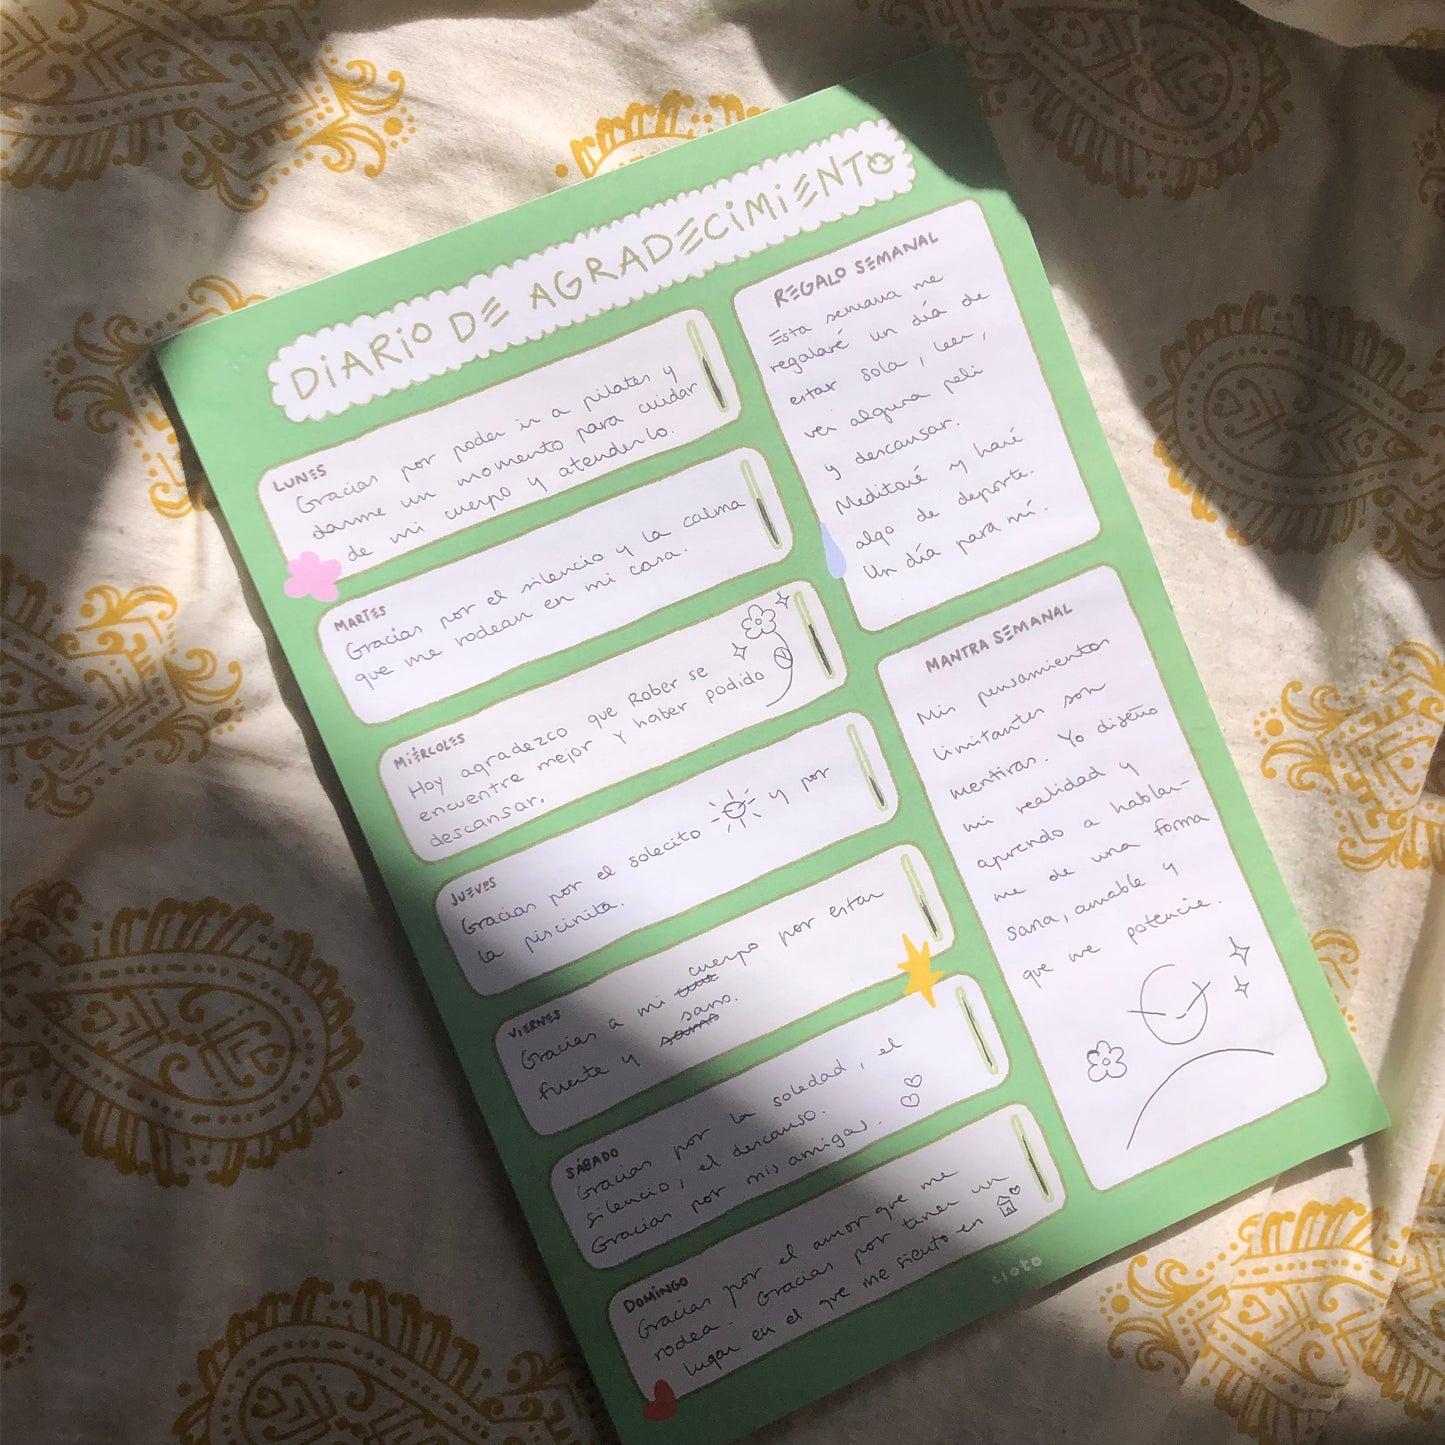 DIARIO DE AGRADECIMIENTO
LUNES
Gracias por poder ir a pilates y
darme un momento para cuidar
de mi cuerpo y atenderlo.
MARTES
Gracias por el silencio y la calma
que me rodean en mi casa.
MIÉRCOLES
Hoy agradezco que Rober se
encuentre mejor y haber podido
descansar.
JUEVES
Gracias por el solecito y por
la piscinita.
VIERNES
Gracias a mi cuerpo por estar
fuerte y sano.
SÁBADO
Gracias por la soledad, el
silencio, el descanso.
Gracias por mis amigas.
DOMINGO
Gracias por el amor que me
rodea. Gracias por tener un
lugar en el que me siento en
REGALO SEMANAL
Esta semana me
regalaré un día de
estar sola, leer,
ver alguna peli
y descansar.
Meditaré y haré
algo de deporte.
Un día para mí.
MANTRA SEMANAL
Mis pensamientos
limitantes son
mentiras. Yo diseño
mi realidad y
aprendo a hablar-
me de una forma
sana, amable y
que me potencie.
cloto